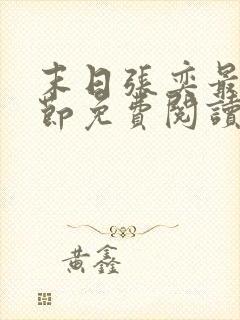 末日張奕最
節免費閱讀
黃鑫